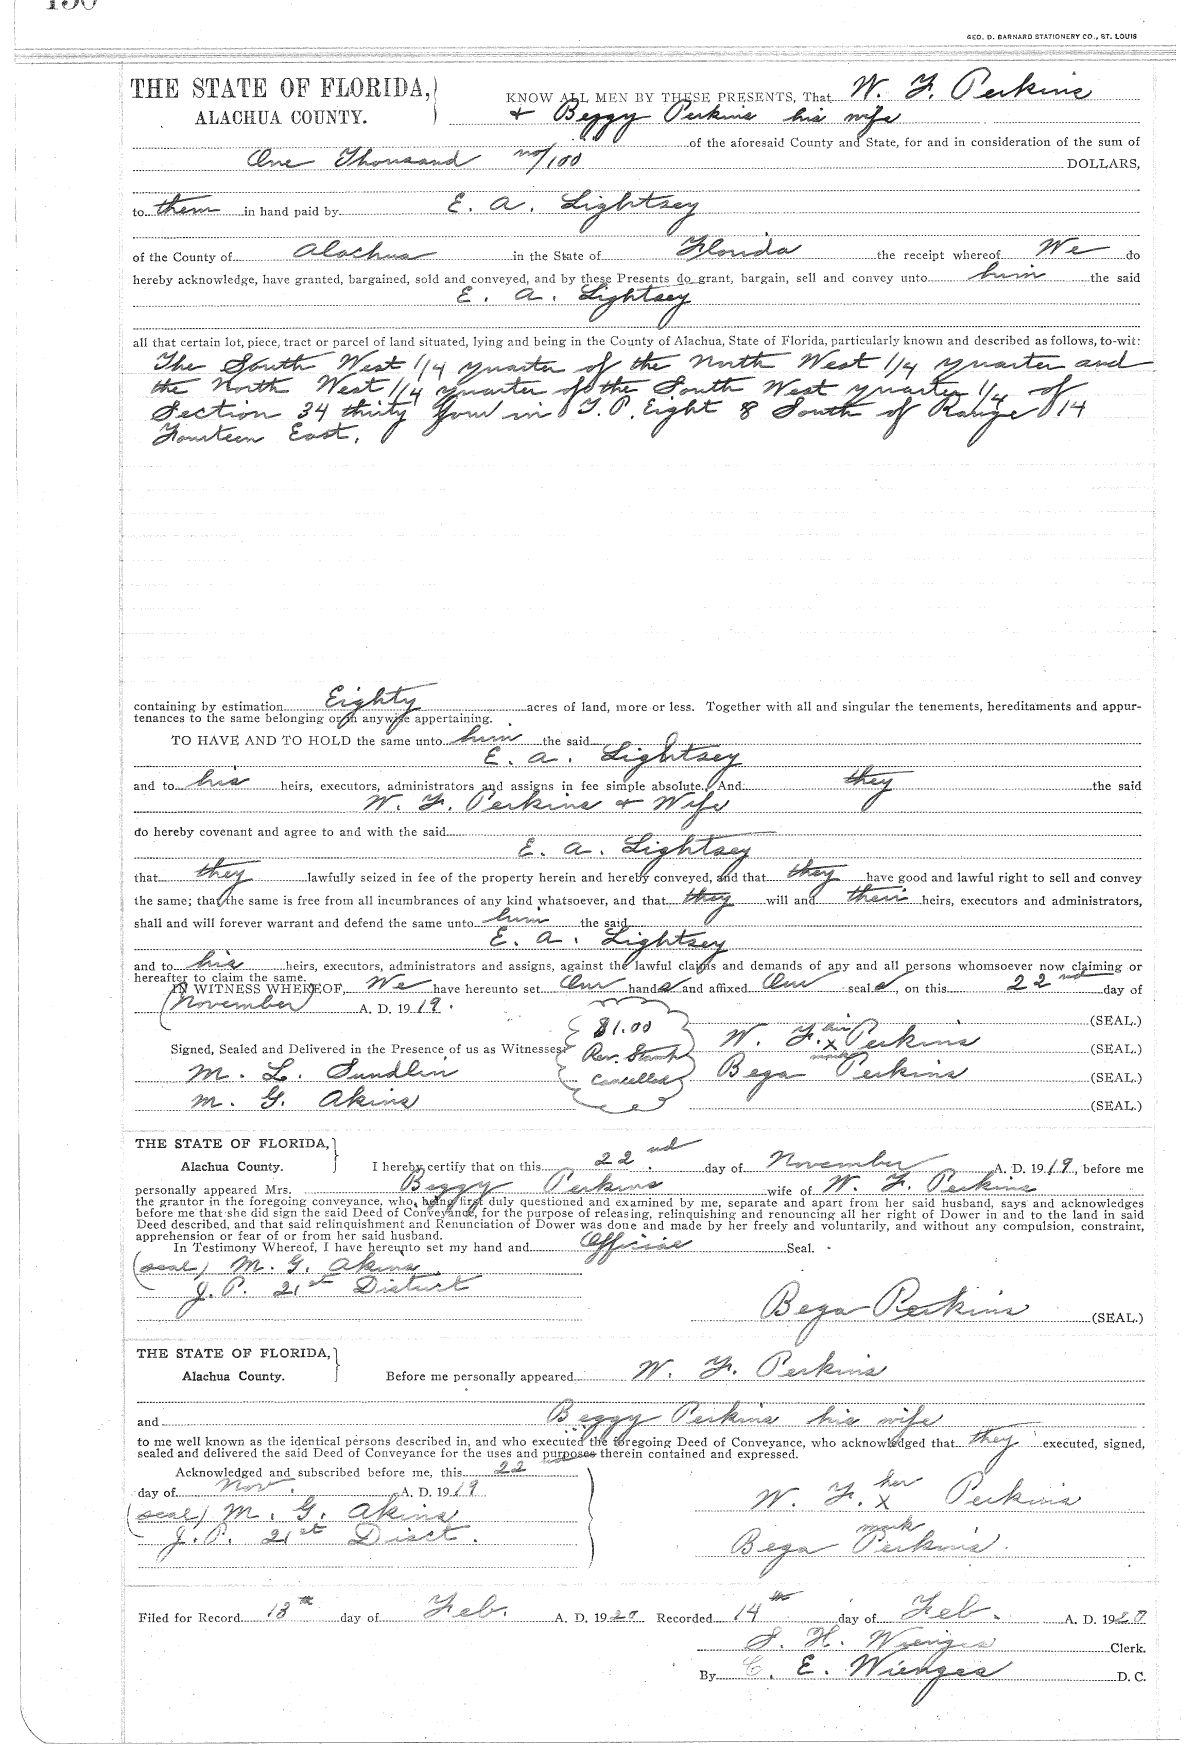 GEO. D. BARNARD STATIONERY CO., ST. LOUIS
THE STATE OF FLORIDA,
ALACHUA COUNTY.
KNOW ALL MEN BY THESE PRESENTS, That W. F. Perkins
& Beggy Perkins his wife
of the aforesaid County and State, for and in consideration of the sum of
One Thousand no/100 DOLLARS,
to them in hand paid by E. A. Lightsey
of the County of Alachua in the State of Florida the receipt whereof We do
hereby acknowledge, have granted, bargained, sold and conveyed, and by these Presents do grant, bargain, sell and convey unto him the said
E. A. Lightsey
all that certain lot, piece, tract or parcel of land situated, lying and being in the County of Alachua, State of Florida, particularly known and described as follows, to-wit:
The South West 1/4 quarter of the North West 1/4 quarter and
the North West 1/4 quarter of the South West quarter 1/4 of
Section 34 thirty four in T.P. Eight 8 South of Range 14
Fourteen East.
containing by estimation Eighty acres of land, more or less. Together with all and singular the tenements, hereditaments and appur-
tenances to the same belonging or in anywise appertaining.
TO HAVE AND TO HOLD the same unto him the said
E. A. Lightsey
and to his heirs, executors, administrators and assigns in fee simple absolute. And they the said
W. F. Perkins & Wife
do hereby covenant and agree to and with the said
E. A. Lightsey
that they lawfully seized in fee of the property herein and hereby conveyed, and that they have good and lawful right to sell and convey
the same; that the same is free from all incumbrances of any kind whatsoever, and that they will and their heirs, executors and administrators,
shall and will forever warrant and defend the same unto him the said
E. A. Lightsey
and to his heirs, executors, administrators and assigns, against the lawful claims and demands of any and all persons whomsoever now claiming or
hereafter to claim the same.
IN WITNESS WHEREOF, We have hereunto set Our hands and affixed Our seals, on this 22nd day of
November A. D. 1919.
(SEAL.)
$1.00
Rev. Stamp
Cancelled
W. F. his x mark Perkins (SEAL.)
Signed, Sealed and Delivered in the Presence of us as Witnesses:
M. L. Sundlin
Bega Perkins (SEAL.)
M. G. Akins
(SEAL.)
THE STATE OF FLORIDA,
Alachua County.
I hereby certify that on this 22nd day of November A. D. 1919, before me
personally appeared Mrs. Beggy Perkins wife of W. F. Perkins
the grantor in the foregoing conveyance, who, being first duly questioned and examined by me, separate and apart from her said husband, says and acknowledges
before me that she did sign the said Deed of Conveyance, for the purpose of releasing, relinquishing and renouncing all her right of Dower in and to the land in said
Deed described, and that said relinquishment and Renunciation of Dower was done and made by her freely and voluntarily, and without any compulsion, constraint,
apprehension or fear of or from her said husband.
In Testimony Whereof, I have hereunto set my hand and Official Seal.
(seal) M. G. Akins
J. P. 21st District
Bega Perkins (SEAL.)
THE STATE OF FLORIDA,
Alachua County.
Before me personally appeared W. F. Perkins
and Beggy Perkins his wife
to me well known as the identical persons described in, and who executed the foregoing Deed of Conveyance, who acknowledged that they executed, signed,
sealed and delivered the said Deed of Conveyance for the uses and purposes therein contained and expressed.
Acknowledged and subscribed before me, this 22
day of Nov. A. D. 1919
(seal) M. G. Akins
J. P. 21st Disct.
W. F. her x mark Perkins
Bega Perkins.
Filed for Record 13th day of Feb. A. D. 1920 Recorded 14th day of Feb. A. D. 1920
S. H. Wienges Clerk.
By C. E. Wienges D. C.